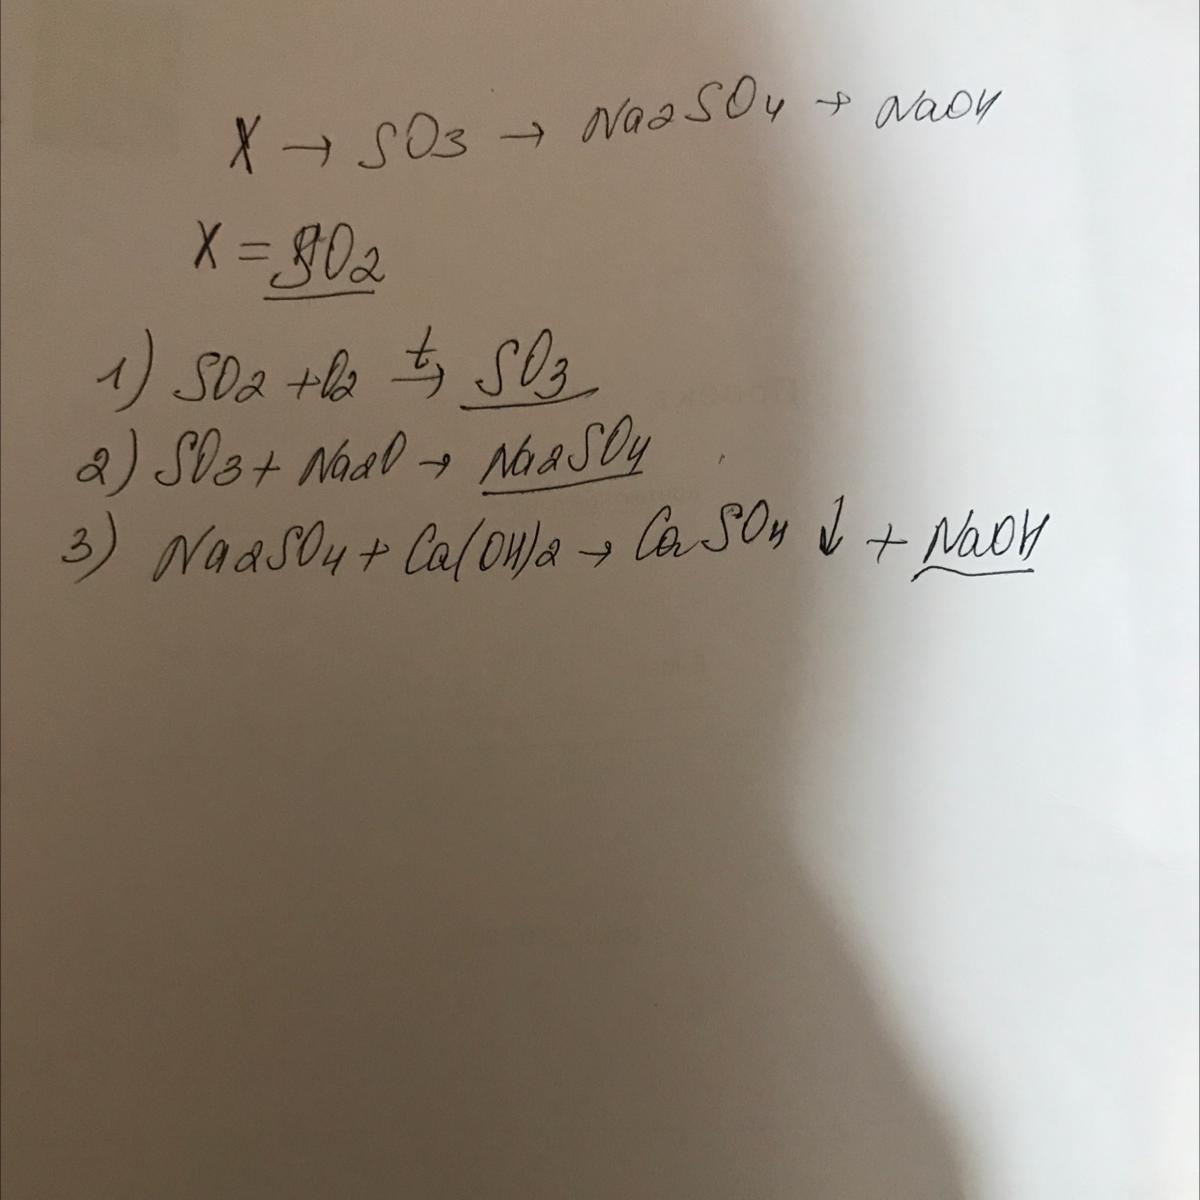 X → SO3 → Na2SO4 → NaOH
X = SO2
1) SO2 + O2 t→ SO3
2) SO3 + Na2O → Na2SO4
3) Na2SO4 + Ca(OH)2 → CaSO4 ↓ + NaOH